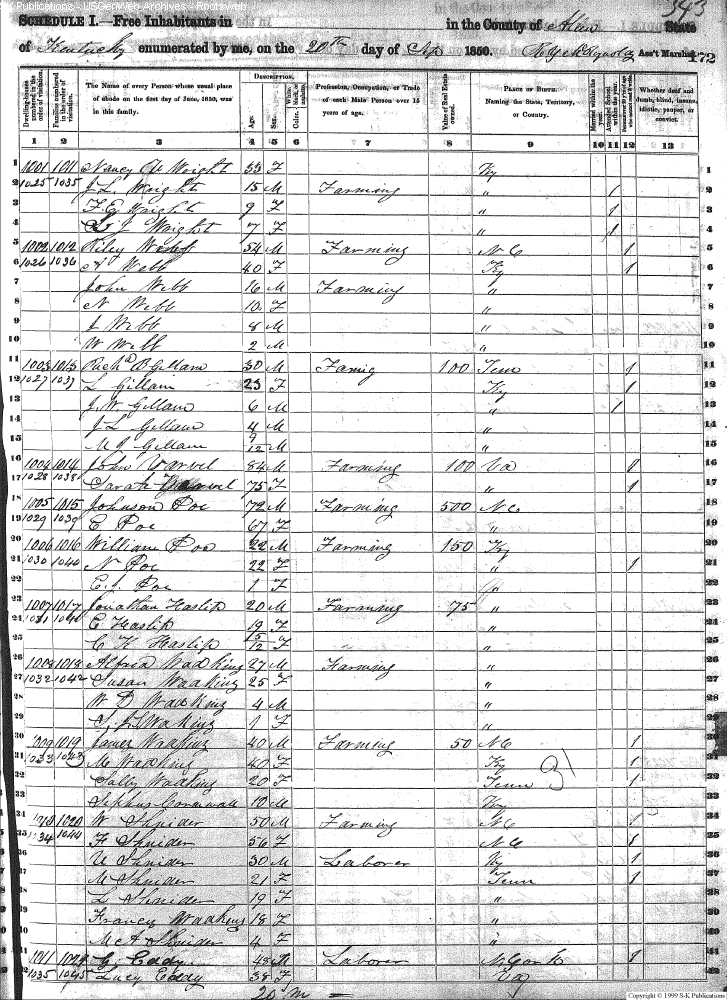 Publications - USGenWeb Archives - Rootsweb
343
SCHEDULE I.—Free Inhabitants in in the County of Allen State
of Kentucky enumerated by me, on the 20th day of Sep 1850. Ass't Marshal. 172
Dwelling-houses numbered in the order of visitation.
Families numbered in the order of visitation.
The Name of every Person whose usual place of abode on the first day of June, 1850, was in this family.
DESCRIPTION.
Age.
Sex.
Color.
Profession, Occupation, or Trade of each Male Person over 15 years of age.
Value of Real Estate owned.
PLACE OF BIRTH. Naming the State, Territory, or Country.
Married within the year.
Attended School within the year.
Whether deaf and dumb, blind, insane, idiotic, pauper, or convict.
1 2 3 4 5 6 7 8 9 10 11 12 13
1 1001 1011 Nancy Wright 33 F Ky 1
2 1025 1035 J L Wright 15 M Farming " 1 2
3 F E Wright 9 F " 1 3
4 J Wright 7 F " 1 4
5 1002 1012 Riley Webb 54 M Farming N C 1 5
6 1026 1036 A Webb 40 F Ky 1 6
7 John Webb 16 M Farming " 7
8 N Webb 10 F " 8
9 J Webb 8 M " 9
10 W Webb 2 M " 10
11 1003 1013 Rich'd B Gillam 30 M Famig 100 Tenn 1 11
12 1027 1037 L Gillam 23 F Ky 1 12
13 J. W. Gillam 6 M " 1 13
14 J L Gillam 4 M " 14
15 M J Gillam 9/12 M " 15
16 1004 1014 John Varvel 84 M Farming 100 Va 1 16
17 1028 1038 Sarah Varvel 75 F " 1 17
18 1005 1015 Johnson Poe 72 M Farming 500 N C 18
19 1029 1039 E Poe 67 F " 19
20 1006 1016 William Poe 22 M Farming 150 Ky 20
21 1030 1040 N Poe 22 F " 1 21
22 E. J. Poe 1 F " 22
23 1007 1017 Jonathan Haslip 20 M Farming 75 " 23
24 1031 1041 E Haslip 19 F " 24
25 C K Haslip /12 F " 25
26 1008 1018 Alfred Wadking 27 M Farming " 26
27 1032 1042 Susan Wadking 25 F " 27
28 W D Wadking 4 M " 28
29 Wadking 1 F " 29
30 1009 1019 James Wadking 40 M Farming 50 N C 1 30
31 1033 1043 M Wadking 40 F Ky 1 31
32 Sally Wadking 20 F Tenn 1 32
31
33 Cornwall 10 M Ky 33
34 1010 1020 W Shnider 50 M Farming N C 1 34
35 1034 1044 F Shnider 56 F N C 1 35
36 U Shnider 30 M Laborer Ky 1 36
37 M Shnider 21 F Tenn 1 37
38 L Shnider 19 F " 38
39 Francy Wadking 18 F " 39
40 M A Shnider 4 F " 40
41 1011 1021 Eddy 48 M Laborer N York 1 41
42 1035 1045 Lucy Eddy 38 F Ky 42
20 m =
Copyright © 1999 S-K Publications